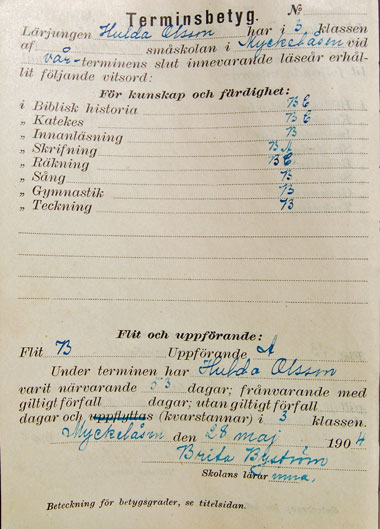 Terminsbetyg. №
Lärjungen Hulda Olsson har i 3 klassen
af småskolan i Myckelåsen vid
vår-terminens slut innevarande läseår erhål-
lit följande vitsord:
För kunskap och färdighet:
i Biblisk historia B C
„ Katekes B C
„ Innanläsning B
„ Skrifning B A
„ Räkning B C
„ Sång B
„ Gymnastik B
„ Teckning B
Flit och uppförande:
Flit B Uppförande A
Under terminen har Hulda Olsson
varit närvarande 53 dagar; frånvarande med
giltigt förfall dagar; utan giltigt förfall
dagar och uppflyttas (kvarstannar) i 3 klassen.
Myckelåsen den 28 maj 1904
Brita Byström
Skolans lärarinna.
Beteckning för betygsgrader, se titelsidan.